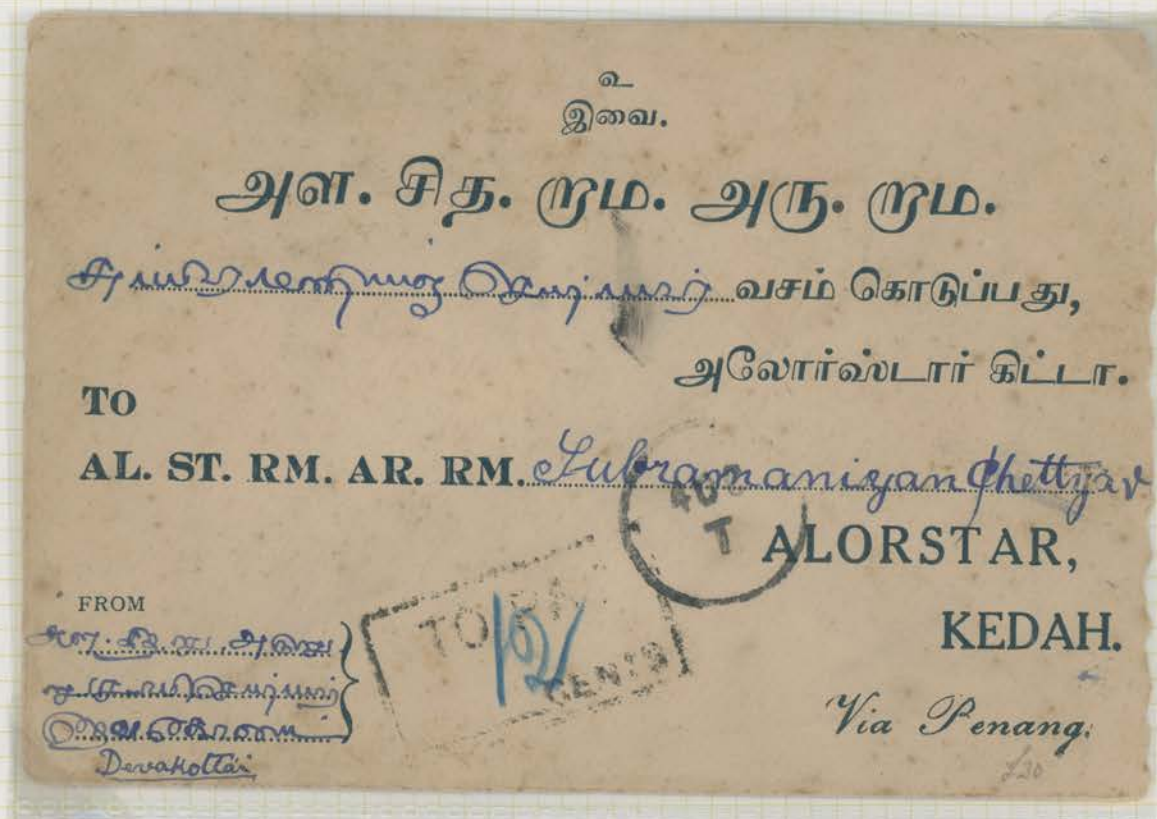 உ
இவை.
அள. சித. ராம. அரு. ராம.
சுப்பிரமணியஞ் செட்டியார் வசம் கொடுப்பது,
அலோர்ஸ்டார் கிட்டா.
TO
AL. ST. RM. AR. RM. Subramaniyan Chettyar
ALORSTAR,
KEDAH.
Via Penang.
40
T
TO PA
12
CENTS
FROM
தேவகோட்டை
Devakottai
£30